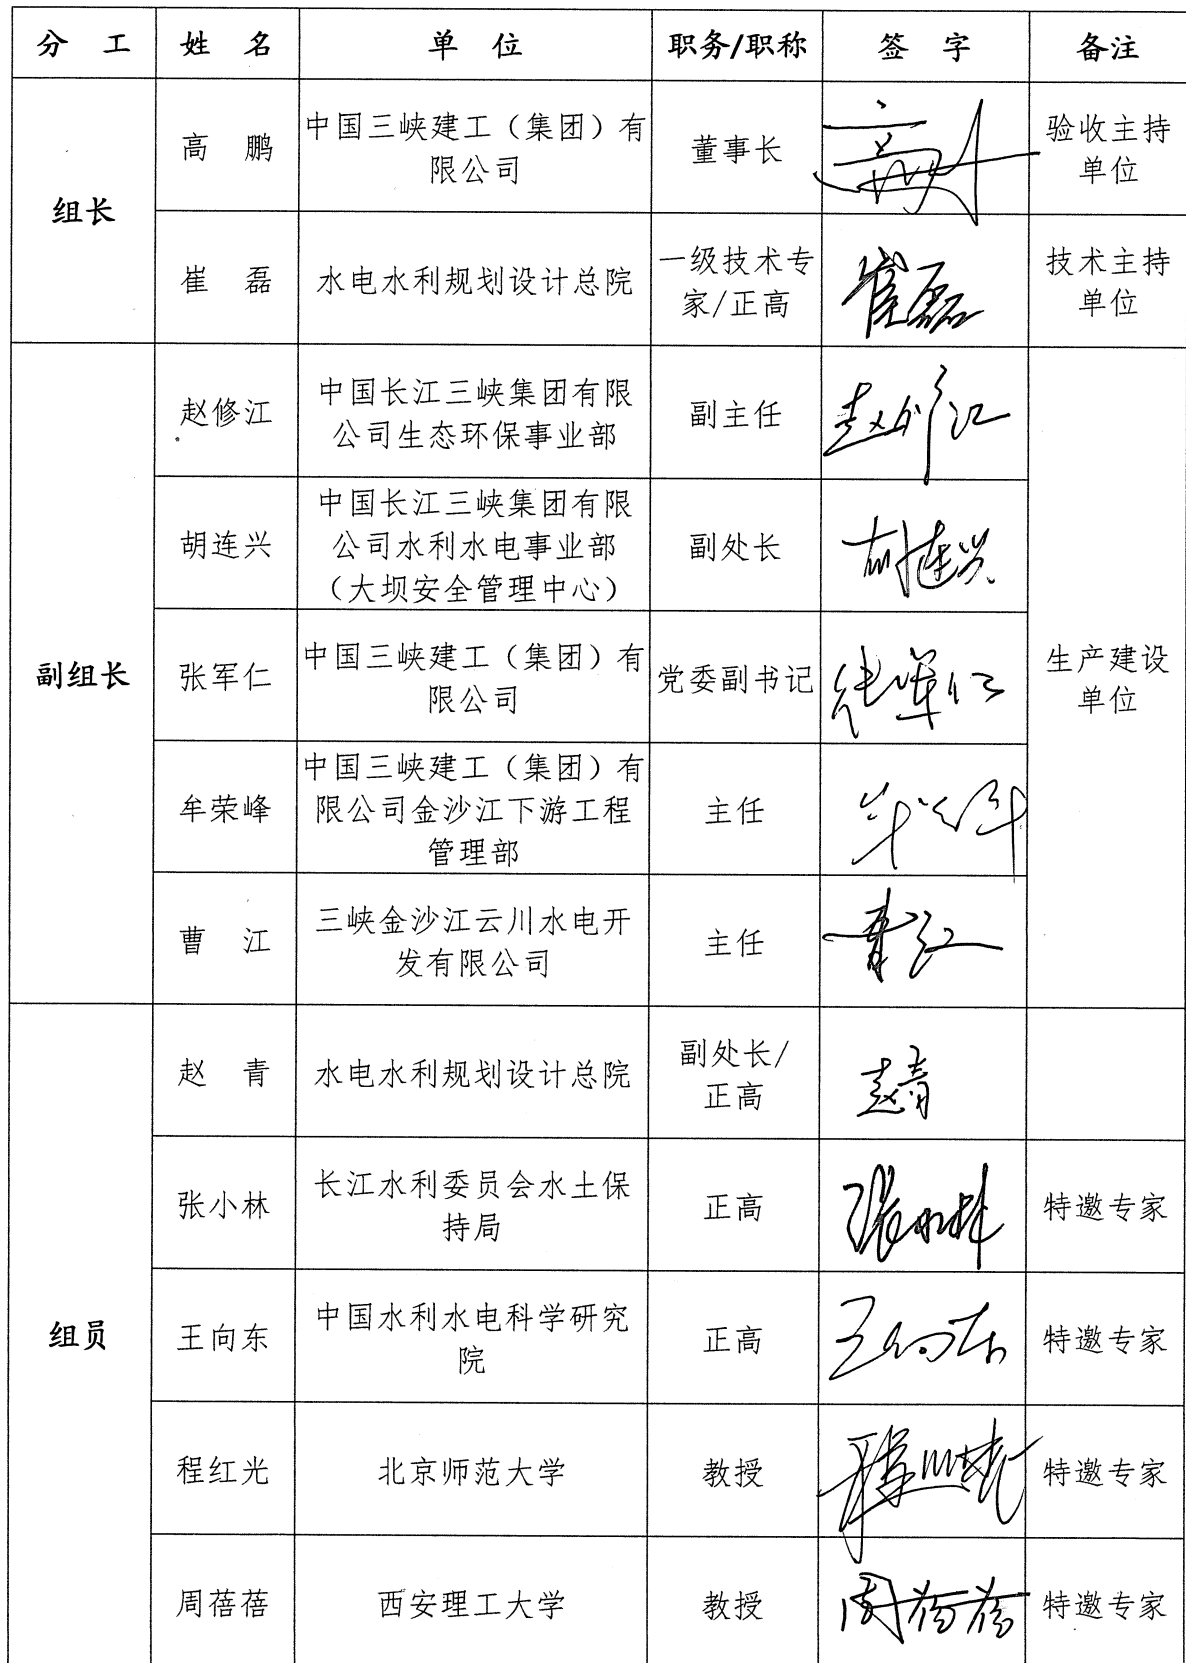 分 工 姓 名 单 位 职务/职称 签 字 备注
组长
高 鹏 中国三峡建工（集团）有
限公司 董事长 验收主持
单位
崔 磊 水电水利规划设计总院 一级技术专
家/正高 崔磊 技术主持
单位
副组长
赵修江 中国长江三峡集团有限
公司生态环保事业部 副主任 赵修江
胡连兴 中国长江三峡集团有限
公司水利水电事业部
（大坝安全管理中心） 副处长 胡连兴
张军仁 中国三峡建工（集团）有
限公司 党委副书记 张军仁 生产建设
单位
牟荣峰 中国三峡建工（集团）有
限公司金沙江下游工程
管理部 主任
曹 江 三峡金沙江云川水电开
发有限公司 主任 曹江
组员
赵 青 水电水利规划设计总院 副处长/
正高 赵青
张小林 长江水利委员会水土保
持局 正高 张小林 特邀专家
王向东 中国水利水电科学研究
院 正高 王向东 特邀专家
程红光 北京师范大学 教授 特邀专家
周蓓蓓 西安理工大学 教授 周蓓蓓 特邀专家